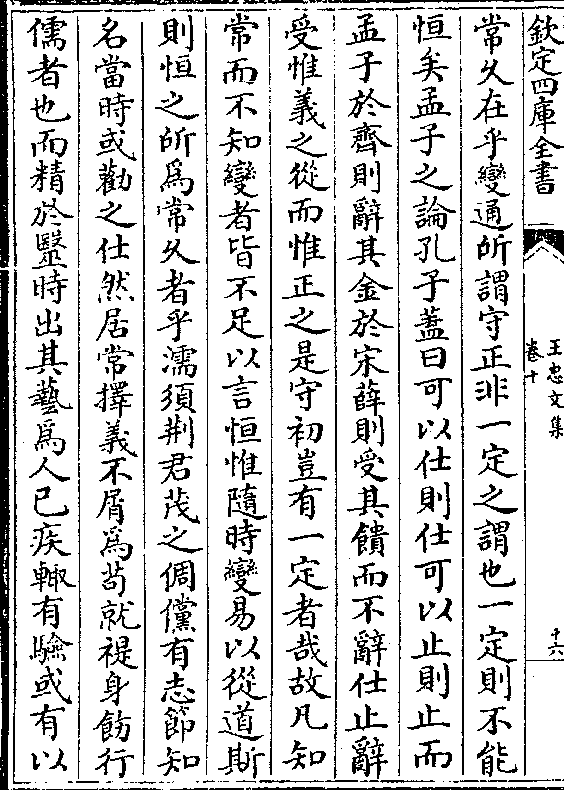 欽定四庫全書
王忠文集
卷十
十六
常久在乎變通所謂守正非一定之謂也一定則不能
恒矣孟子之論孔子蓋曰可以仕則仕可以止則止而
孟子於齊則辭其金於宋薛則受其饋而不辭仕止辭
受惟義之從而惟正之是守初豈有一定者哉故凡知
常而不知變者皆不足以言恒惟隨時變易以從道斯
則恒之所為常久者乎濡須荆君茂之倜儻有志節知
名當時或勸之仕然居常擇義不屑為苟就禔身飭行
儒者也而精於毉時出其藝為人已疾輙有驗或有以